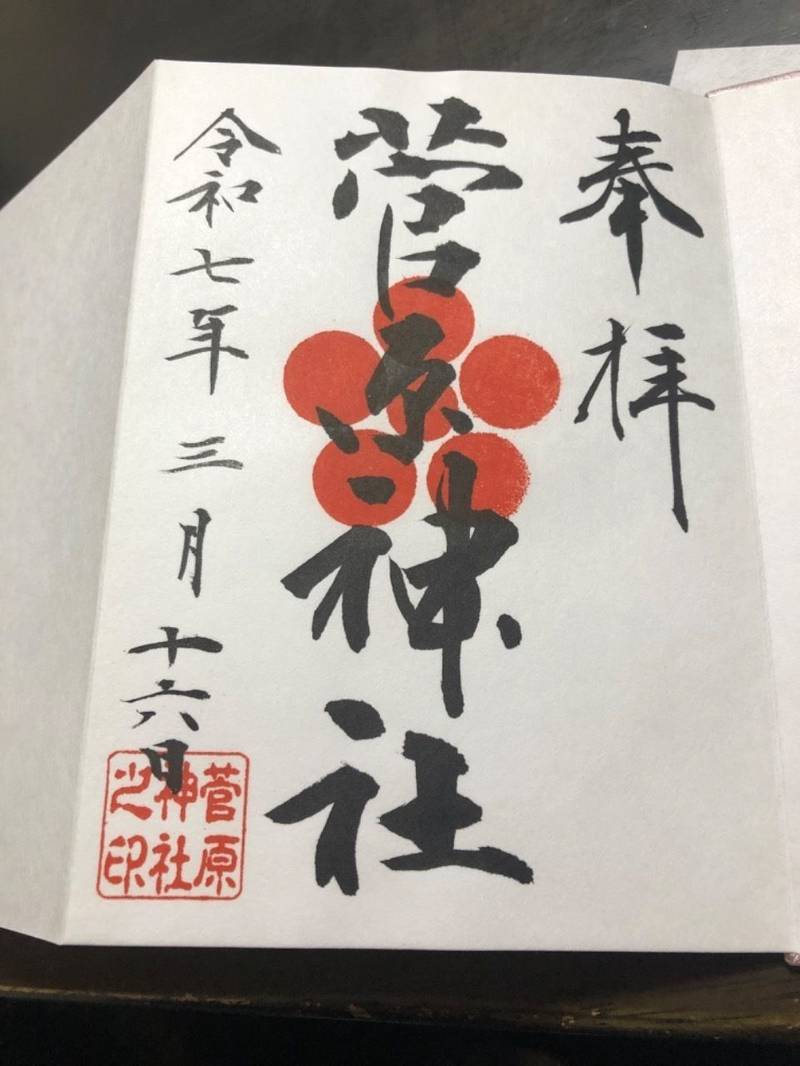 奉拝
菅原神社
令和七年三月十六日
菅原
神社
之印